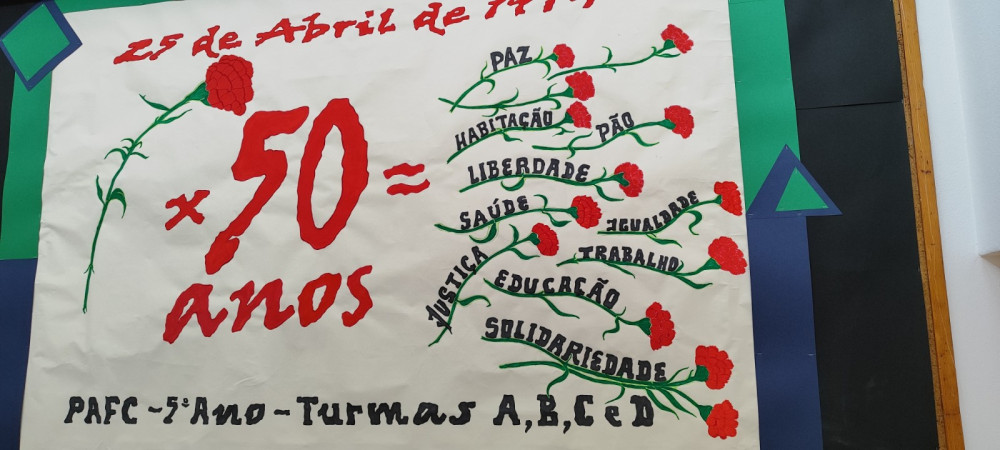 25 de Abril de 1974
PAZ
HABITAÇÃO
PÃO
LIBERDADE
SAÚDE
IGUALDADE
JUSTIÇA
TRABALHO
EDUCAÇÃO
SOLIDARIEDADE
x 50 =
anos
PAFC - 5º Ano - Turmas A, B, C e D